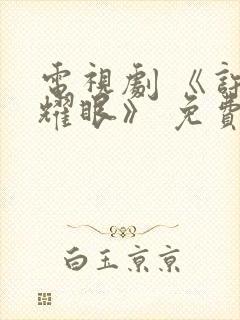 電視劇《許
耀眼》 免費
白玉京京